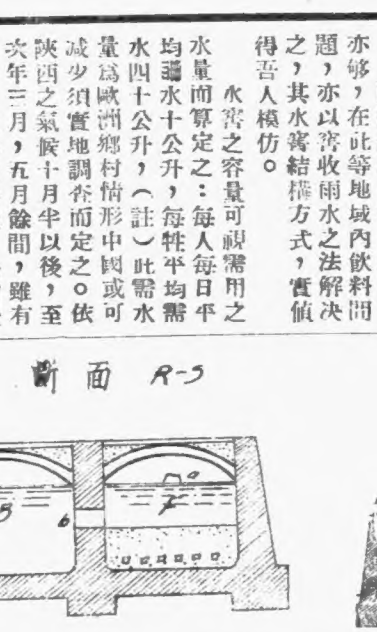 亦够，在此等地域内飲料問
題，亦以窖收雨水之法解决
之，其水窖結構方式，實值
得吾人模仿。
水窖之容量可視需用之
水量而算定之：每人每日平
均需水十公升，每牲平均需
水四十公升，（註）此需水
量爲歐洲鄉村情形中國或可
减少須實地調查而定之。依
陝西之氣候十月半以後，至
次年三月，五月餘間，雖有
斷面 R-S
a
b